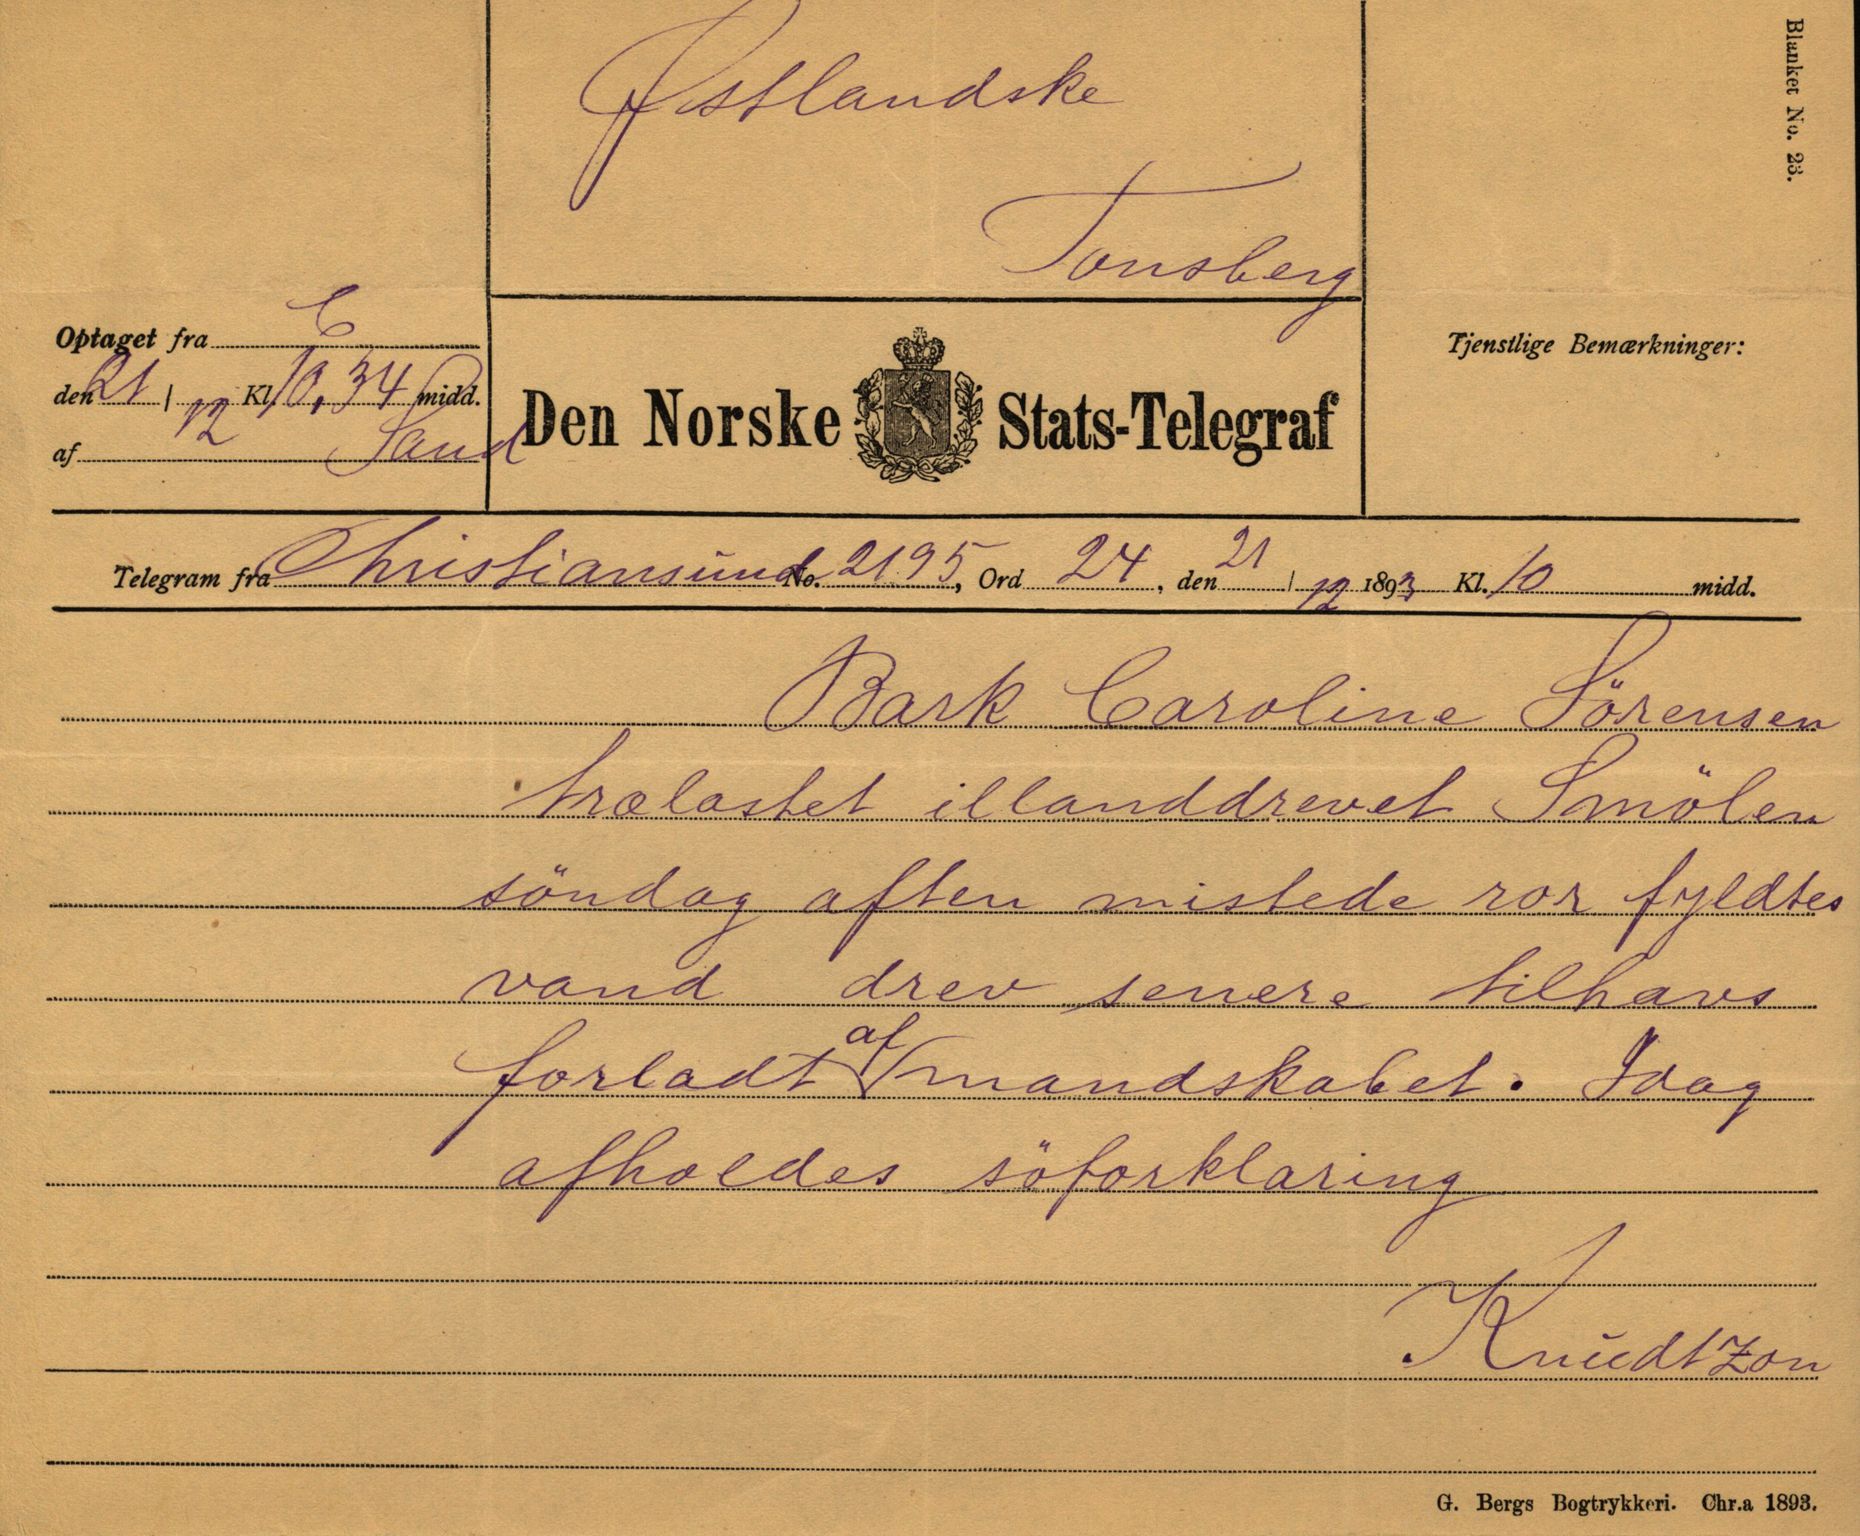 Blanket No. 23.
Østlandske
Tonsberg
Optaget fra C
den 21 / 12 Kl. 10,34 midd.
af Sand
Den Norske Stats-Telegraf
Tjenstlige Bemærkninger:
Telegram fra Christiansund No. 2195, Ord 24, den 21 / 12 1893 Kl. 10 midd.
Bark Caroline Sörensen
trælastet illanddrevet Smölen
söndag aften mistede ror fyldtes
vand drev senere tilhavs
forladt af mandskabet. Idag
afholdes söforklaring
Knudtzon
G. Bergs Bogtrykkeri. Chr.a 1893.